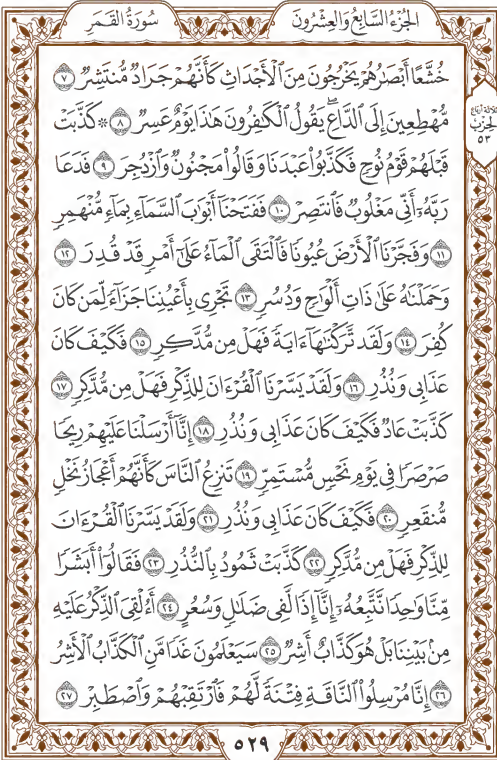 الجُزْءُ السَّابِعُ وَالعِشْرُونَ سُورَةُ القَمَرِ
خُشَّعًا أَبْصَٰرُهُمْ يَخْرُجُونَ مِنَ ٱلْأَجْدَاثِ كَأَنَّهُمْ جَرَادٌ مُّنتَشِرٌ ٧
مُّهْطِعِينَ إِلَى ٱلدَّاعِۖ يَقُولُ ٱلْكَٰفِرُونَ هَٰذَا يَوْمٌ عَسِرٌ ٨ ۞ كَذَّبَتْ
قَبْلَهُمْ قَوْمُ نُوحٍ فَكَذَّبُوا۟ عَبْدَنَا وَقَالُوا۟ مَجْنُونٌ وَٱزْدُجِرَ ٩ فَدَعَا
رَبَّهُۥٓ أَنِّى مَغْلُوبٌ فَٱنتَصِرْ ١٠ فَفَتَحْنَآ أَبْوَٰبَ ٱلسَّمَآءِ بِمَآءٍ مُّنْهَمِرٍ
١١ وَفَجَّرْنَا ٱلْأَرْضَ عُيُونًا فَٱلْتَقَى ٱلْمَآءُ عَلَىٰٓ أَمْرٍ قَدْ قُدِرَ ١٢
وَحَمَلْنَٰهُ عَلَىٰ ذَاتِ أَلْوَٰحٍ وَدُسُرٍ ١٣ تَجْرِى بِأَعْيُنِنَا جَزَآءً لِّمَن كَانَ
كُفِرَ ١٤ وَلَقَد تَّرَكْنَٰهَآ ءَايَةً فَهَلْ مِن مُّدَّكِرٍ ١٥ فَكَيْفَ كَانَ
عَذَابِى وَنُذُرِ ١٦ وَلَقَدْ يَسَّرْنَا ٱلْقُرْءَانَ لِلذِّكْرِ فَهَلْ مِن مُّدَّكِرٍ ١٧
كَذَّبَتْ عَادٌ فَكَيْفَ كَانَ عَذَابِى وَنُذُرِ ١٨ إِنَّآ أَرْسَلْنَا عَلَيْهِمْ رِيحًا
صَرْصَرًا فِى يَوْمِ نَحْسٍ مُّسْتَمِرٍّ ١٩ تَنزِعُ ٱلنَّاسَ كَأَنَّهُمْ أَعْجَازُ نَخْلٍ
مُّنقَعِرٍ ٢٠ فَكَيْفَ كَانَ عَذَابِى وَنُذُرِ ٢١ وَلَقَدْ يَسَّرْنَا ٱلْقُرْءَانَ
لِلذِّكْرِ فَهَلْ مِن مُّدَّكِرٍ ٢٢ كَذَّبَتْ ثَمُودُ بِٱلنُّذُرِ ٢٣ فَقَالُوٓا۟ أَبَشَرًا
مِّنَّا وَٰحِدًا نَّتَّبِعُهُۥٓ إِنَّآ إِذًا لَّفِى ضَلَٰلٍ وَسُعُرٍ ٢٤ أَءُلْقِىَ ٱلذِّكْرُ عَلَيْهِ
مِنۢ بَيْنِنَا بَلْ هُوَ كَذَّابٌ أَشِرٌ ٢٥ سَيَعْلَمُونَ غَدًا مَّنِ ٱلْكَذَّابُ ٱلْأَشِرُ
٢٦ إِنَّا مُرْسِلُوا۟ ٱلنَّاقَةِ فِتْنَةً لَّهُمْ فَٱرْتَقِبْهُمْ وَٱصْطَبِرْ ٢٧
ثلاثة أرباع
الحزب
٥٣
٥٢٩